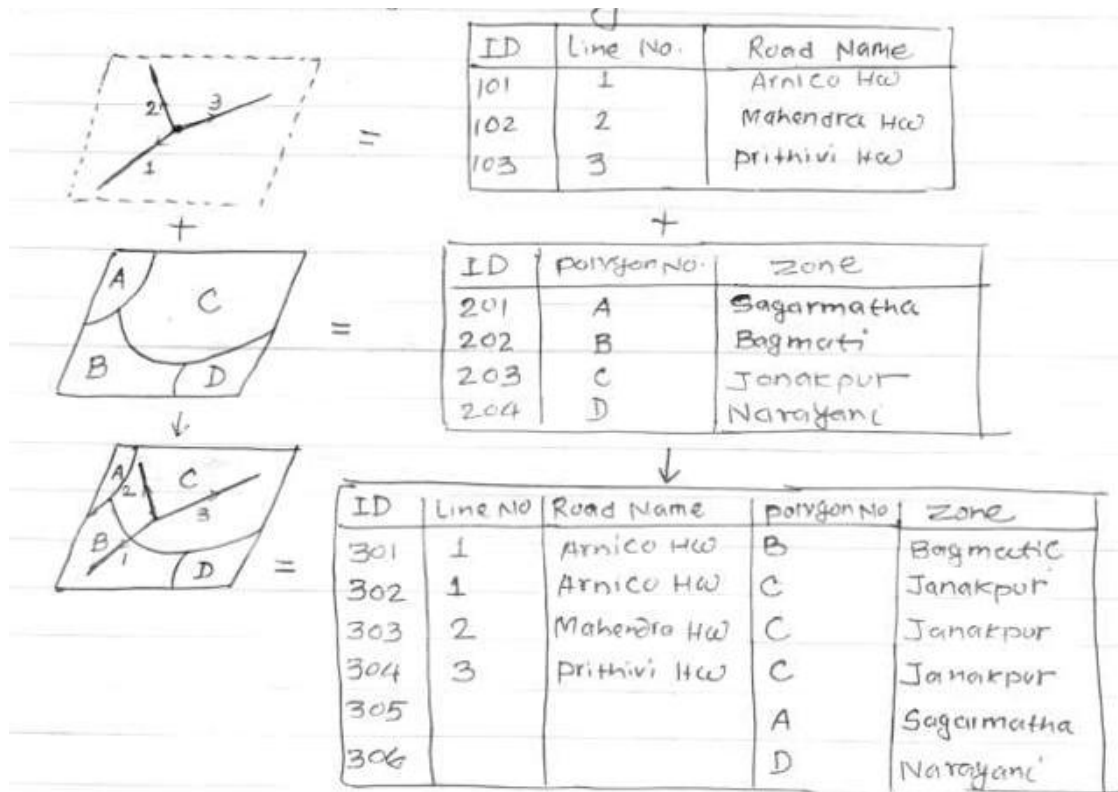 ID Line No. Road Name
101 1 Arnico HW
102 2 Mahendra HW
103 3 prithivi HW
2 3
1
=
+
+
ID polygon No. zone
201 A Sagarmatha
202 B Bagmati
203 C Janakpur
204 D Narayani
A C
B D
=
ID Line No Road Name polygon No zone
301 1 Arnico HW B Bagmatic
302 1 Arnico HW C Janakpur
303 2 Mahendra HW C Janakpur
304 3 prithivi HW C Janakpur
305 A Sagarmatha
306 D Narayani
A 2 C
3
B 1 D
=